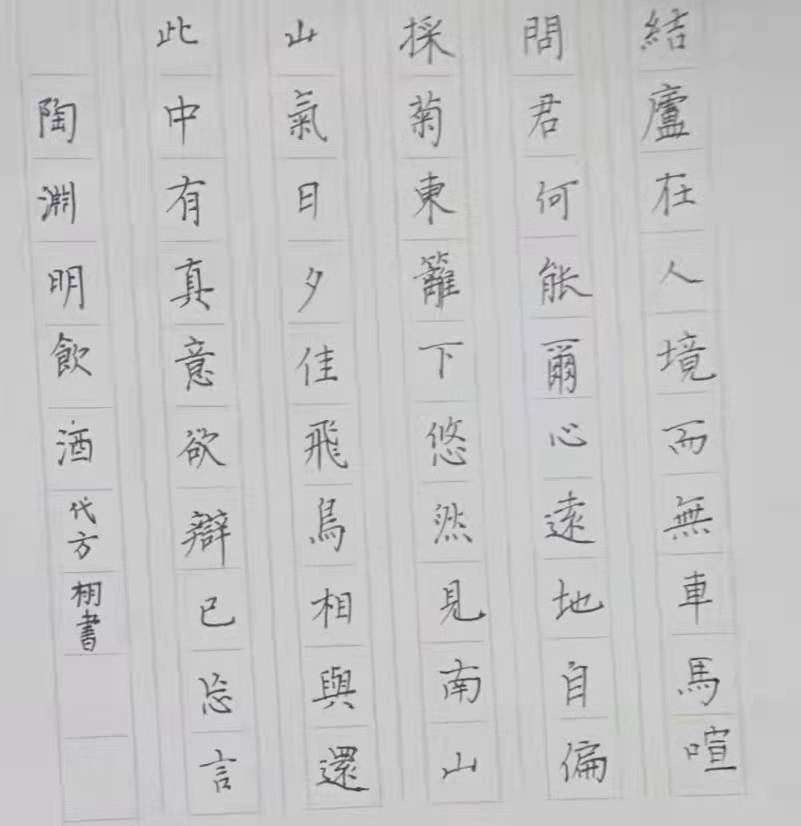 結廬在人境而無車馬喧
問君何能爾心遠地自偏
採菊東籬下悠然見南山
山氣日夕佳飛鳥相與還
此中有真意欲辯已忘言
陶淵明飲酒代方栩書